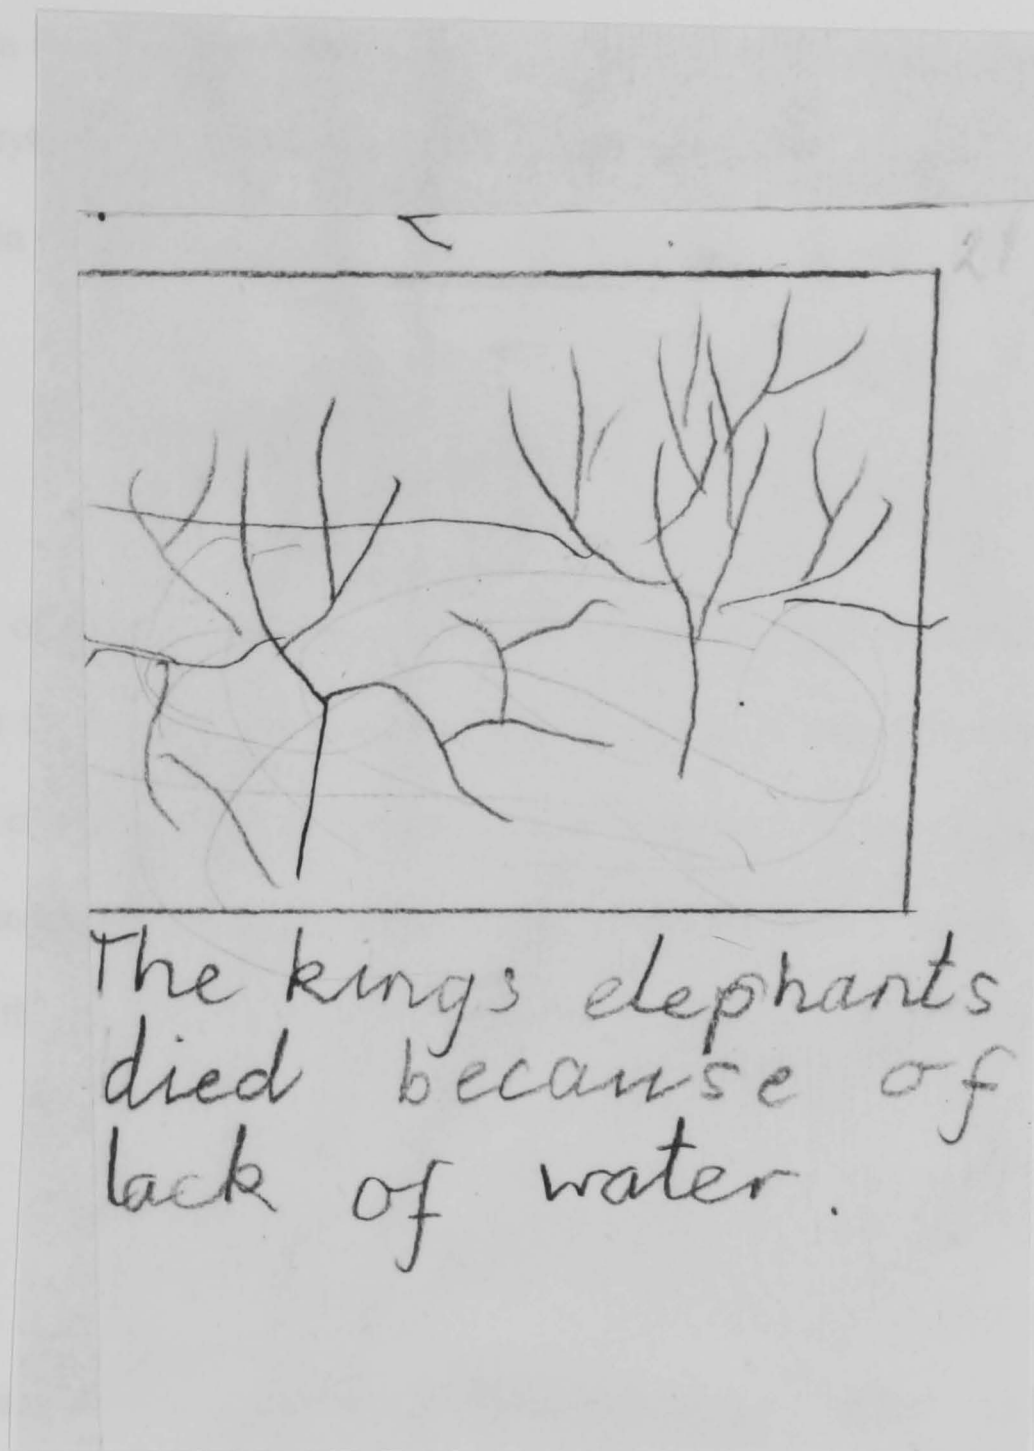 The kings elephants
died because of
lack of water.